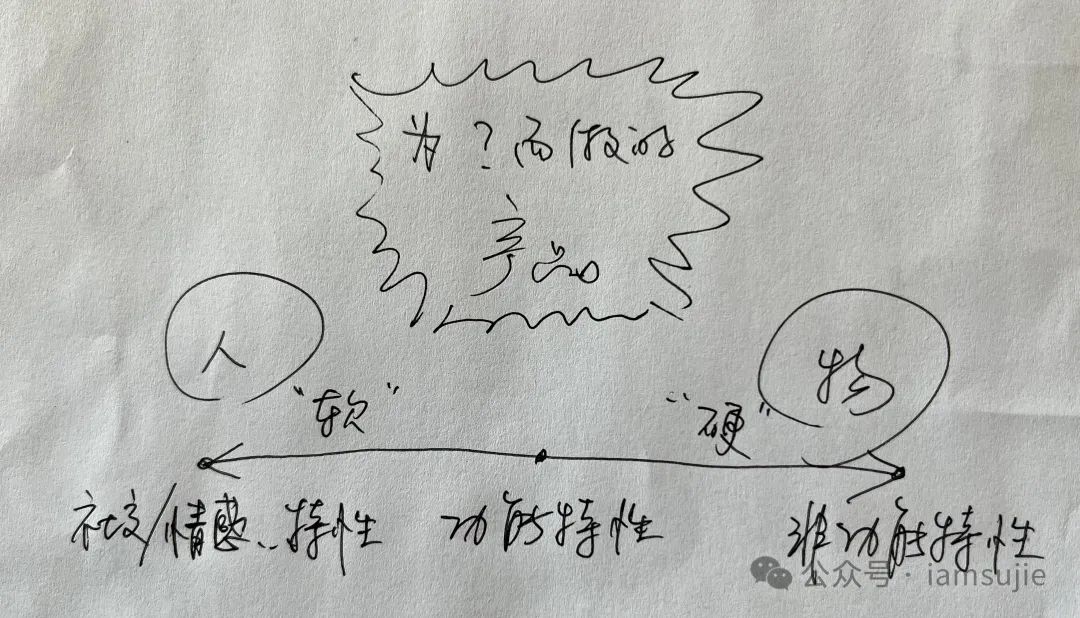 为？而做的
产品
人
物
“软”
“硬”
社交/情感..特性
功能特性
非功能特性
公众号 · iamsujie